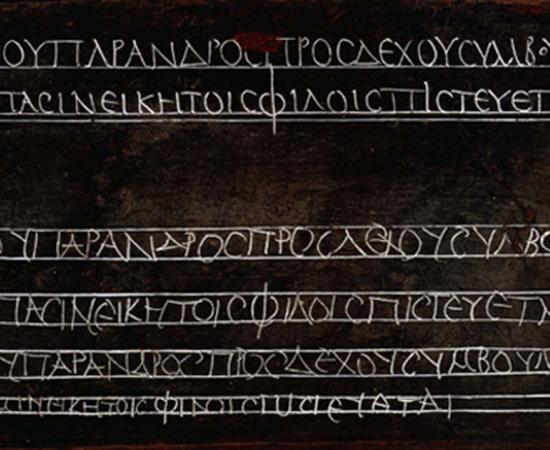 ΟΥΠΑΡΑΝΔΡΟϹΠΡΟϹΔΕΧΟΥϹΥΜΒΟ
ΠΑϹΙΝΕΙΚΗΤΟΙϹΦΙΛΟΙϹΠΙϹΤΕΥΕΤ
ΟΥΠΑΡΑΝΔΡΟϹΠΡΟϹΔΕΧΟΥϹΥΜΒΟ
ΠΑϹΙΝΕΙΚΗΤΟΙϹΦΙΛΟΙϹΠΙϹΤΕΥΕΤΑ
ΥΠΑΡΑΝΔΡΟϹΠΡΟϹΔΕΧΟΥϹΥΜΒΟΥΛ
ϹΙΝΕΙΚΗΤΟΙϹΦΙΛΟΙϹ